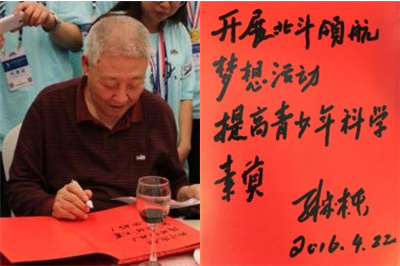 开展北斗领航
梦想活动
提高青少年科学
素质
孙家栋
2016.4.22